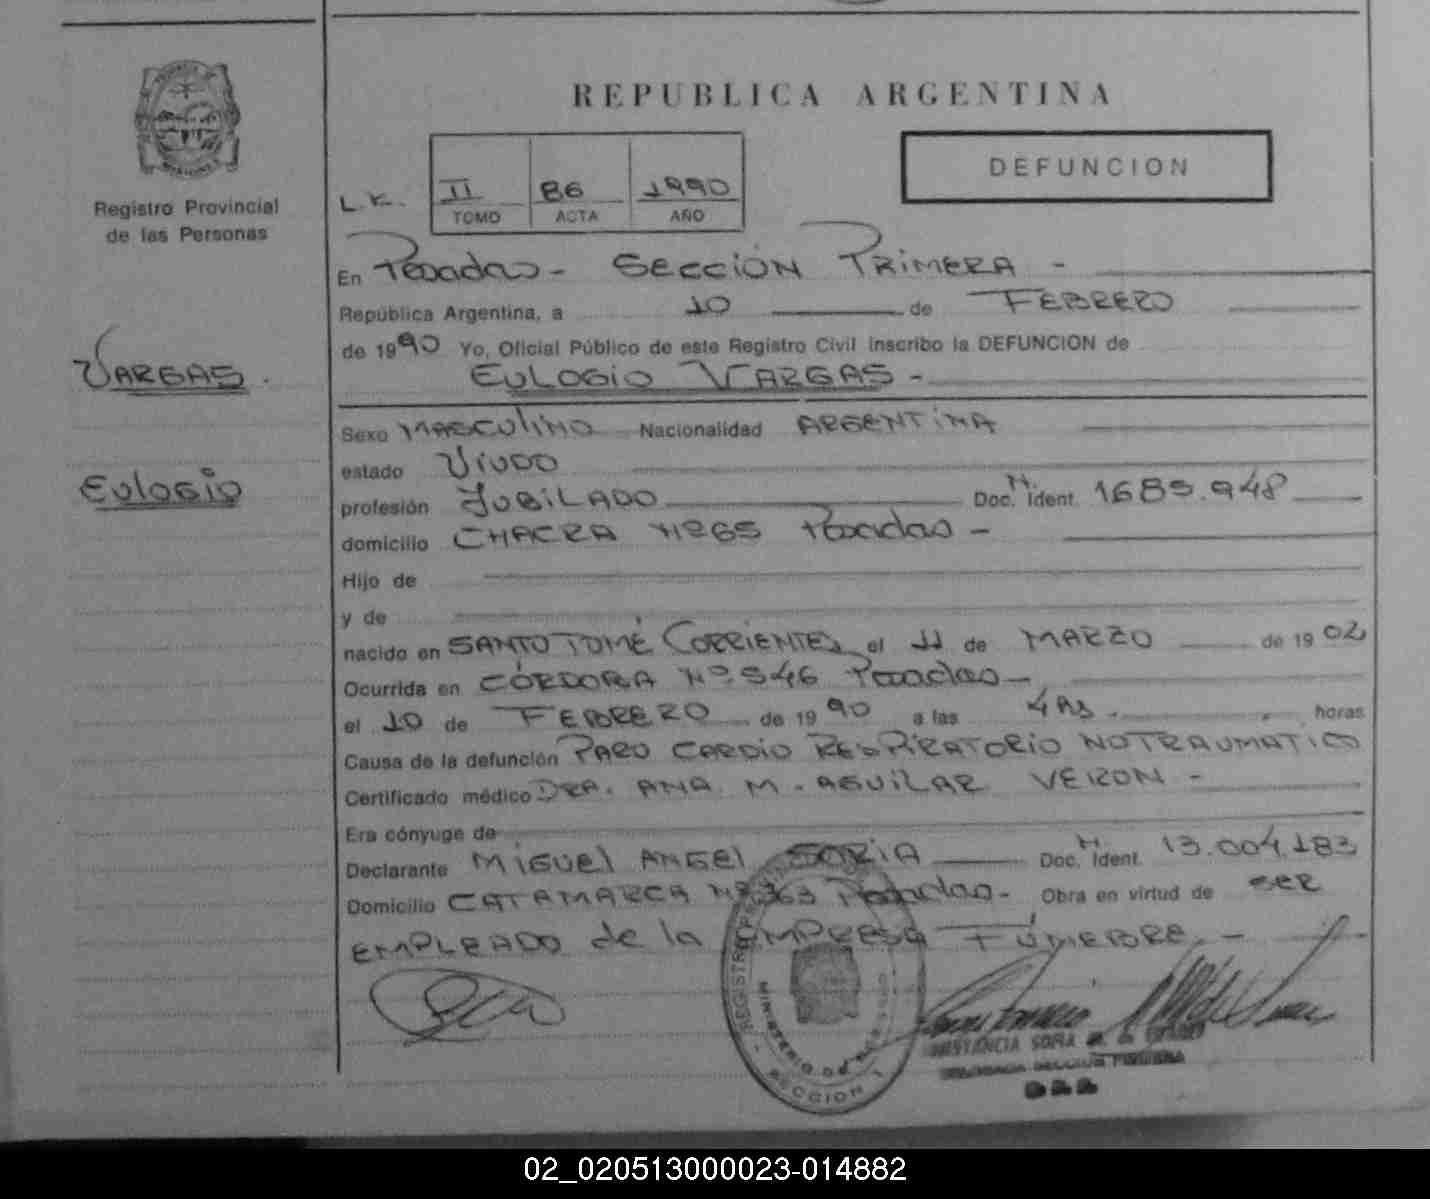 REPUBLICA ARGENTINA
DEFUNCION
Registro Provincial
de las Personas
L.K. II 86 1990
TOMO ACTA AÑO
En Posadas - SECCIÓN PRIMERA -
República Argentina, a 10 de FEBRERO
de 1990 Yo, Oficial Público de este Registro Civil inscribo la DEFUNCION de
EULOGIO VARGAS -
VARGAS.
EULOGIO
Sexo MASCULINO Nacionalidad ARGENTINA
estado VIUDO
profesión JUBILADO Doc. N. Ident. 1685.948
domicilio CHACRA Nº 65 Posadas -
Hijo de
y de
nacido en SANTO TOMÉ CORRIENTES el 11 de MARZO de 1902
Ocurrida en CÓRDOBA Nº 546 Posadas -
el 10 de FEBRERO de 1990 a las 4 hs. horas
Causa de la defunción PARO CARDIO RESPIRATORIO NO TRAUMATICO
Certificado médico DRA. ANA M. AGUILAR VERON -
Era cónyuge de
Declarante MIGUEL ANGEL SORIA Doc. N. Ident. 13.004.183
Domicilio CATAMARCA Nº 363 Posadas - Obra en virtud de SER
EMPLEADO de la EMPRESA FÚNEBRE. -
REGISTRO
MINISTERIO DE
SECCION 1
SOFIA
02_020513000023-014882